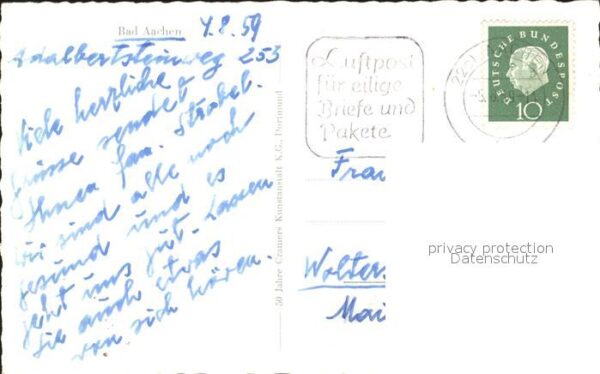 Bad Aachen 4.8.59
Adalbertsteinweg 253
Viele herzliche
Grüsse sendet
Ihnen fam. Strobel.
Wir sind alle noch
gesund und es
geht uns gut. Lassen
Sie auch etwas
von sich hören.
50 Jahre Cramers Kunstanstalt K.G., Dortmund
Luftpost
für eilige
Briefe und
Pakete
DEUTSCHE BUNDESPOST
10
Frau
Wolter
Mai
privacy protection
Datenschutz